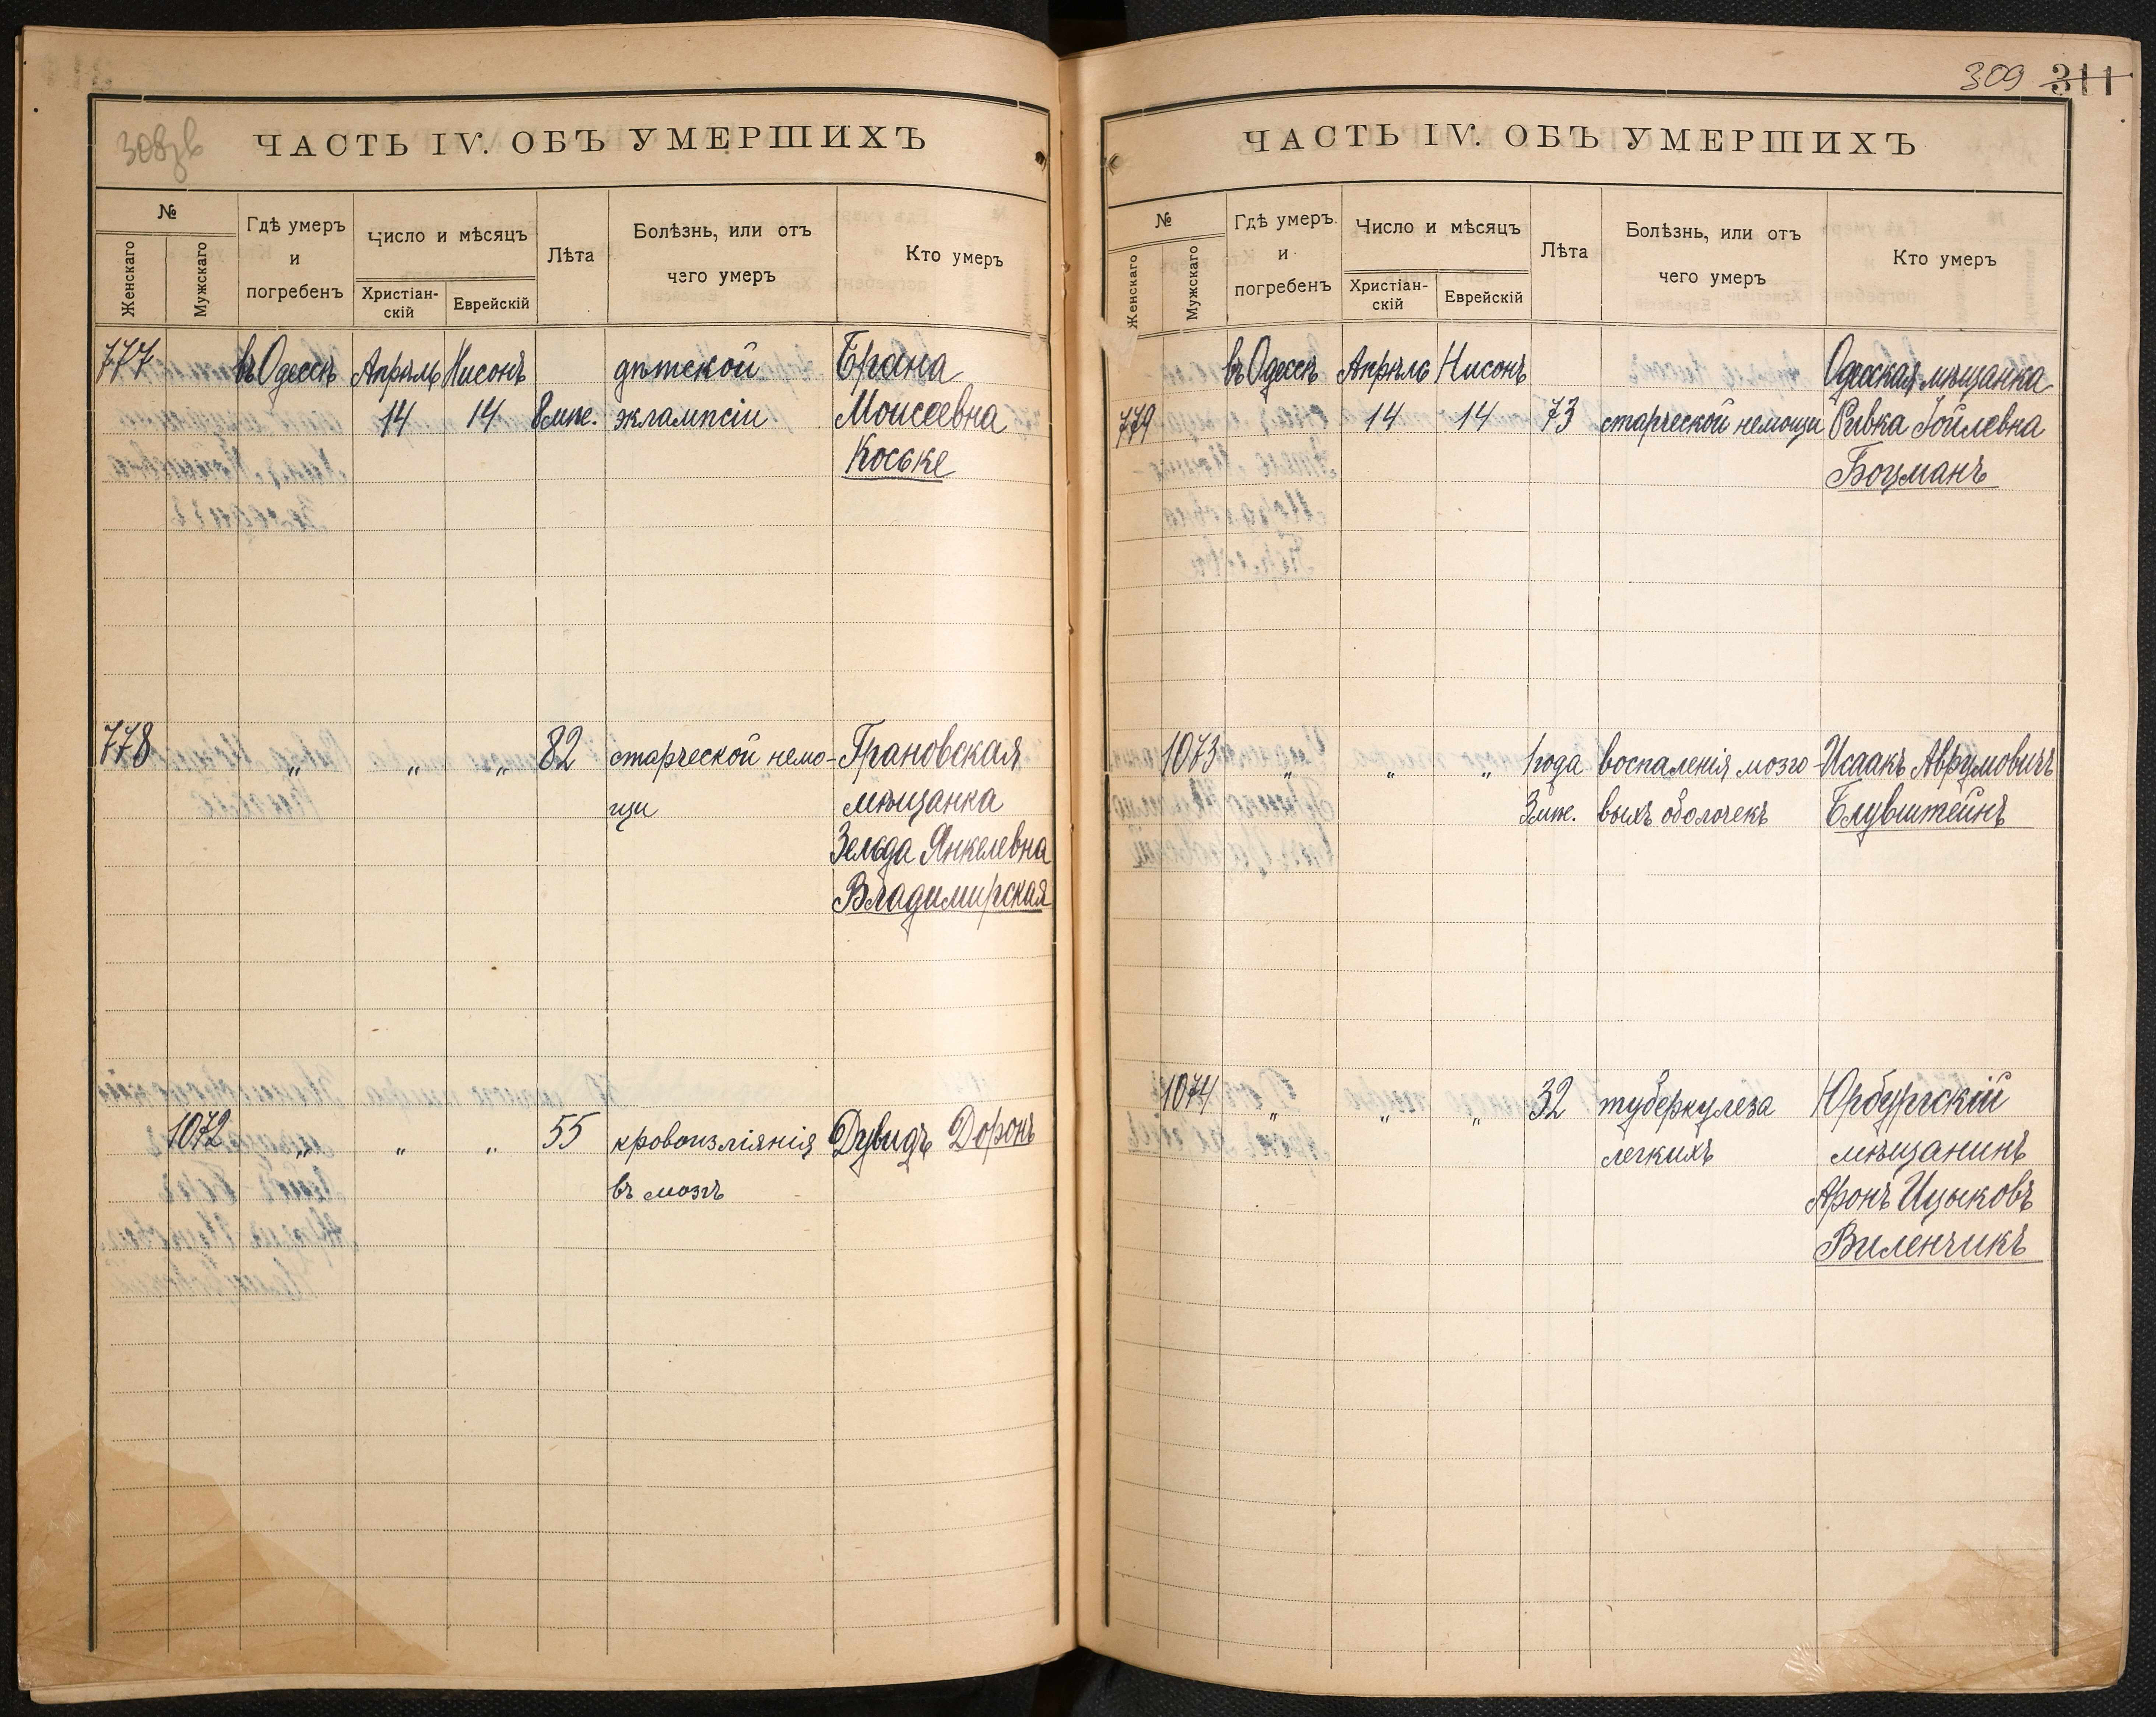 308зв
ЧАСТЬ IV. ОБЪ УМЕРШИХЪ
№
Женскаго
Мужскаго
Гдѣ умеръ
и
погребенъ
Число и мѣсяцъ
Христіан-
скій
Еврейскій
Лѣта
Болѣзнь, или отъ
чего умеръ
Кто умеръ
777 въ Одессѣ Апрѣль Нисонъ дѣтской Брана
14 14 8 мѣс. экламpсіи Моисеевна
Коське
778 „ „ „ 82 старческой немо- Грановская
щи мѣщанка
Зельда Янкелевна
Владимирская
1072 „ „ „ 55 кровоизліянія Дувидъ Доронъ
въ мозгъ
309 311
ЧАСТЬ IV. ОБЪ УМЕРШИХЪ
№
Женскаго
Мужскаго
Гдѣ умеръ
и
погребенъ
Число и мѣсяцъ
Христіан-
скій
Еврейскій
Лѣта
Болѣзнь, или отъ
чего умеръ
Кто умеръ
въ Одессѣ Апрѣль Нисонъ Одесская мѣщанка
779 14 14 73 старческой немощи Ривка Іойлевна
Боцманъ
1073 „ „ „ 1 года воспаленія мозго- Исаакъ Аврумовичъ
3 мѣс. выхъ оболочекъ Блувштейнъ
1074 „ „ „ 32 туберкулеза Юрбургскій
легкихъ мѣщанинъ
Аронъ Ицыковъ
Виленчикъ